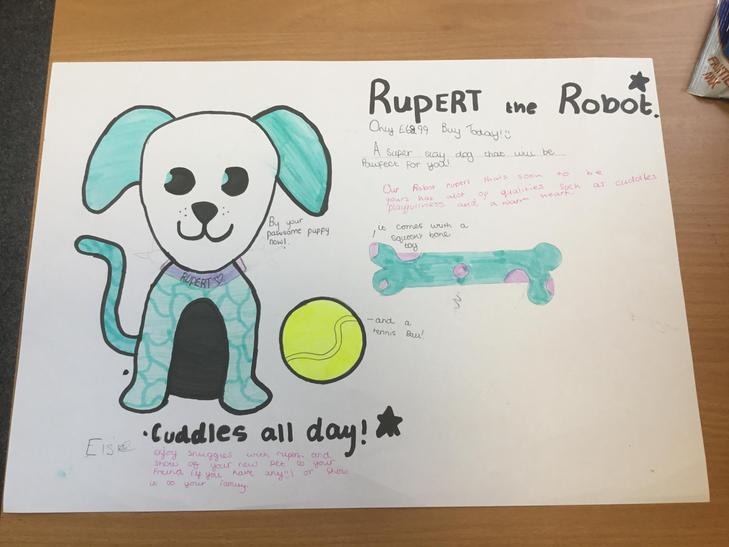 RUPERT the Robot.
Only £68.99 Buy Today!!
A super sray dog that will be
Pawfect For you!
Our Robot rupert thats soon to be
yours has alot of qualities Such as cuddles
playfullness and a warm heart.
By your
pawsome puppy
now!
it comes with a
squeeky bone
toy
RUPERT
-and a
tennis Ball!
Cuddles all day!
Elsie
Enjoy snuggles with rupert and
show of your new pet to your
Friend (if you have any!!) or show
it to your Family.